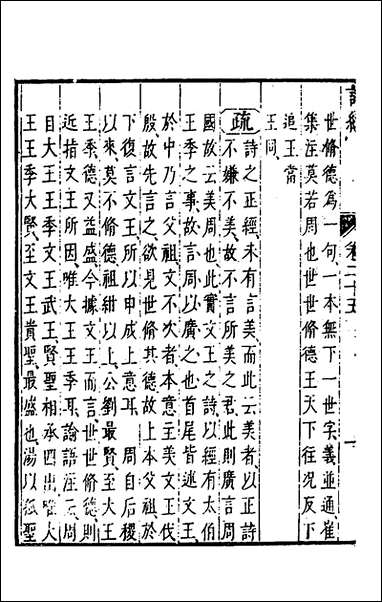 世脩德為一句一本無下一世字義並通崔
集注莫若周也世世脩德王天下往況反下
追王當
王同
疏詩之正經未有言美而此云美者以正詩
不嫌不美故不言所美之君此則廣言周
國故云美周也此實文王之詩以經有太伯
王季之事故言周以廣之也首尾皆述文王
於中乃言父祖文不次者本意主美文王伐
殷故先言之欲見世脩其德故上本父祖於
下復言文王所以申成上意耳 周自后稷
以來莫不脩德祖紺以上公劉最賢至大王
王季德又益盛今據文王而言世世脩德則
近指文王所因唯大王王季耳論語注云周
自大王王季文王武王賢聖相承四世唯大
王王季大賢至文王貴聖最盛也湯以孤聖
詩經 卷二十五